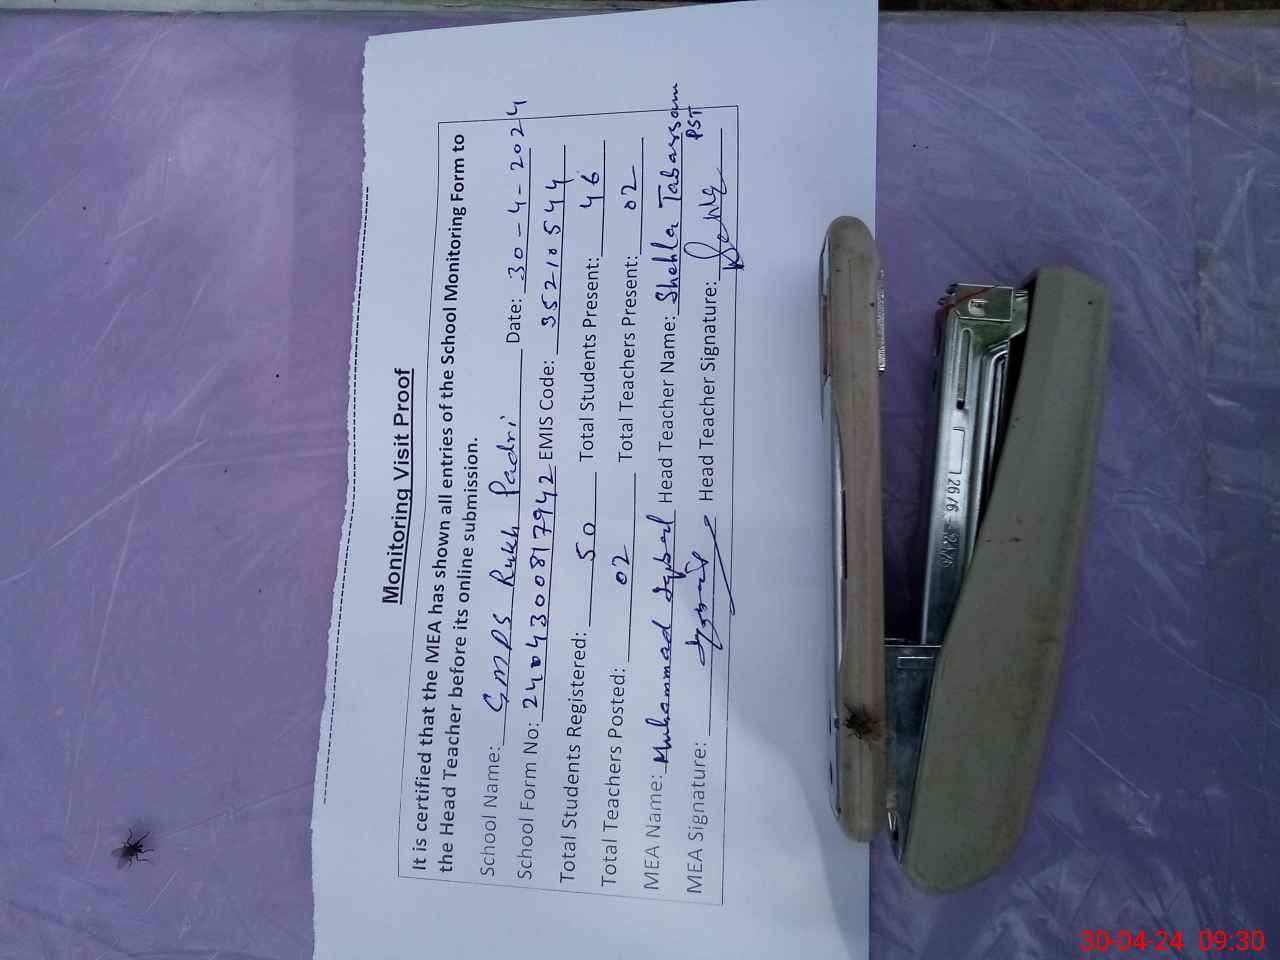 Monitoring Visit Proof
It is certified that the MEA has shown all entries of the School Monitoring Form to
the Head Teacher before its online submission.
School Name: GMPS Rukh Padri Date: 30-4-2024
School Form No: 2404300817942 EMIS Code: 35210544
Total Students Registered: 50 Total Students Present: 46
Total Teachers Posted: 02 Total Teachers Present: 02
MEA Name: Muhammad Iqbal Head Teacher Name: Shehla Tabassam
PST
MEA Signature: Head Teacher Signature:
26/6
30-04-24 09:30